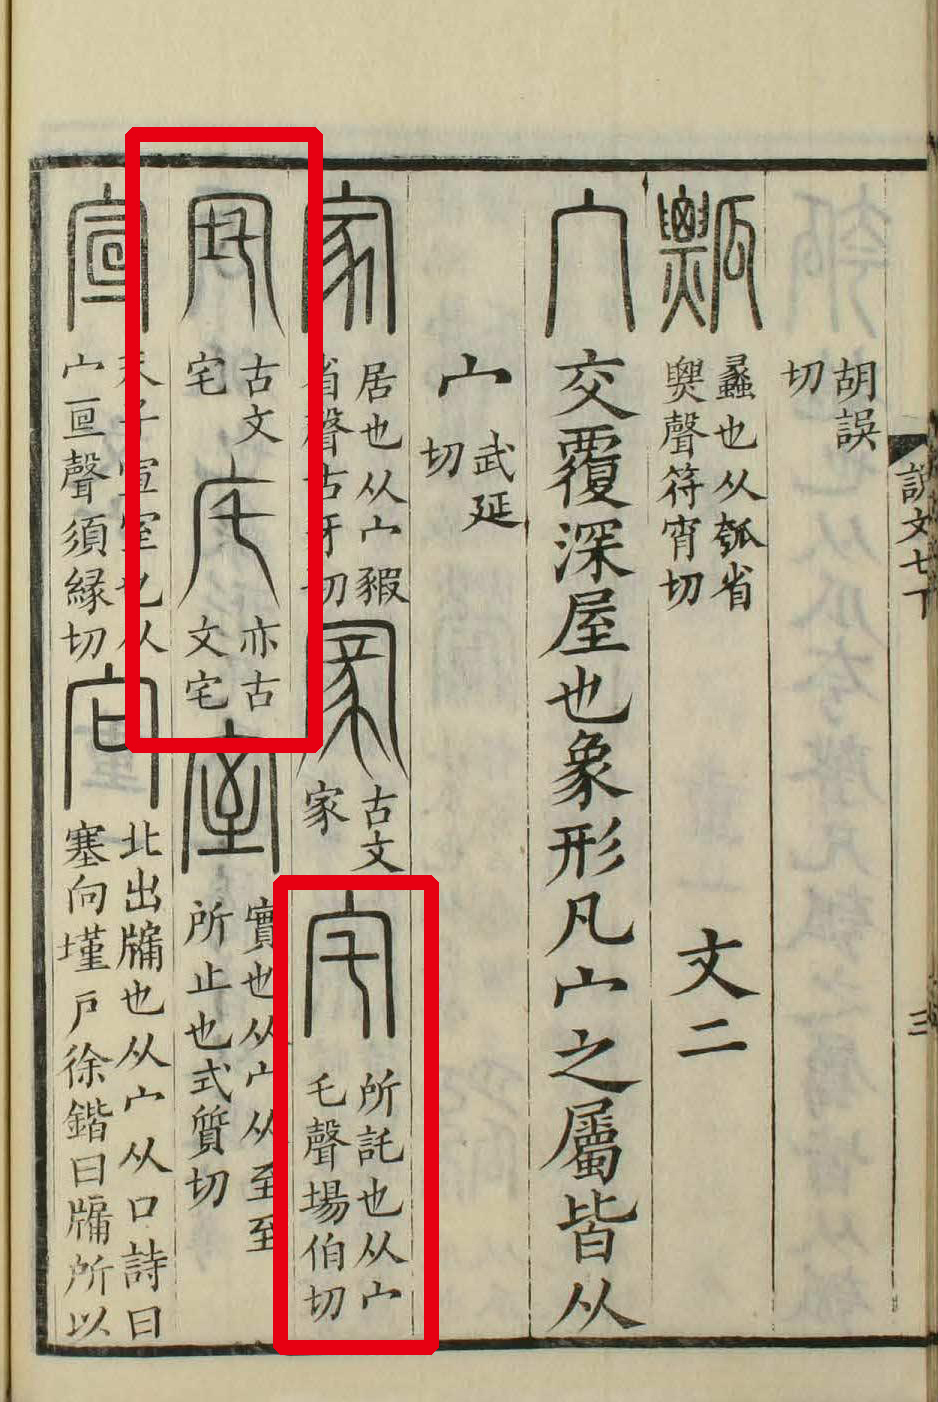 說文七下
三
胡誤
切
𤬓 蠡也从瓠省
㯱聲符宵切
文二
宀 交覆深屋也象形凡宀之屬皆从
宀 武延
切
家 居也从宀豭
省聲古牙切
𠖔 古文
家
宅 所託也从宀
乇聲場伯切
㡯 古文
宅
㡯 亦古
文宅
室 實也从宀从至至
所止也式質切
宣 天子宣室也从
宀亘聲須緣切
向 北出牖也从宀从口詩曰
塞向墐戶徐鍇曰牖所以